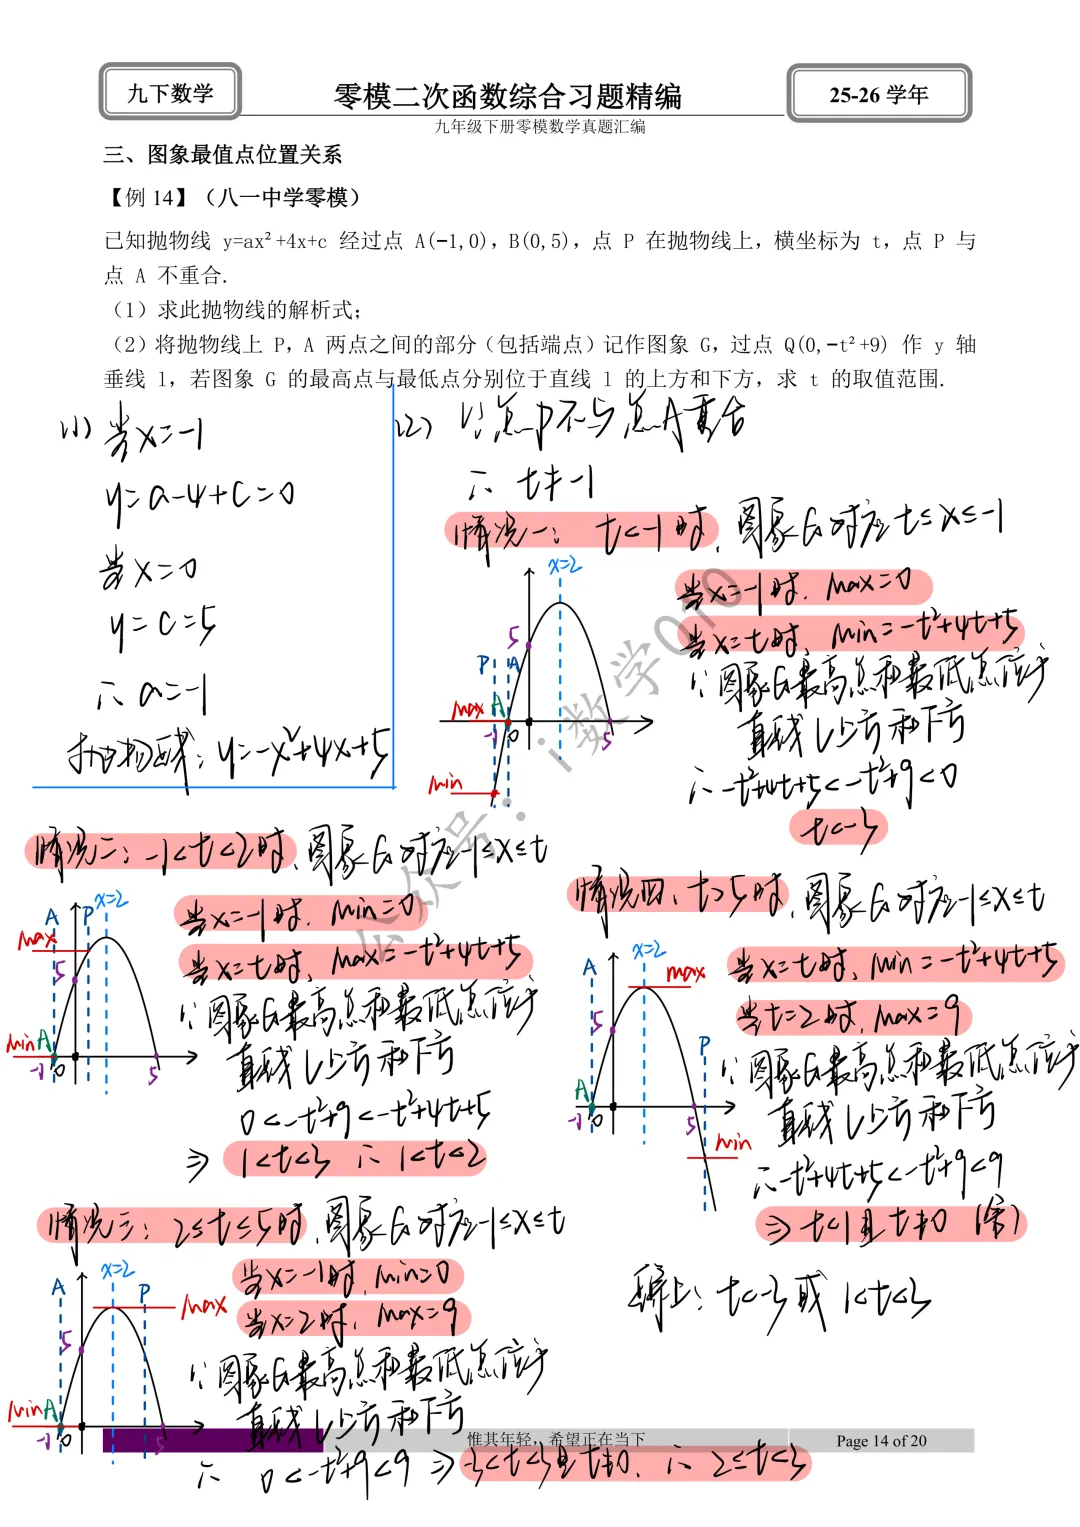 九下数学
零模二次函数综合习题精编
25-26 学年
九年级下册零模数学真题汇编
三、图象最值点位置关系
【例 14】（八一中学零模）
已知抛物线 y=ax²+4x+c 经过点 A(−1,0)，B(0,5)，点 P 在抛物线上，横坐标为 t，点 P 与
点 A 不重合.
（1）求此抛物线的解析式；
（2）将抛物线上 P，A 两点之间的部分（包括端点）记作图象 G，过点 Q(0,−t²+9) 作 y 轴
垂线 l，若图象 G 的最高点与最低点分别位于直线 l 的上方和下方，求 t 的取值范围.
(1) 当x=-1
y=a-4+c=0
当x=0
y=c=5
∴ a=-1
抛物线：y=-x²+4x+5
(2) ∵点P不与点A重合
∴ t≠-1
情况一： t<-1时，图象G对应t≤x≤-1
x=2
5
P
A
max A
-1
0
5
min
当x=-1时，max=0
当x=t时，min=-t²+4t+5
∵图象G最高点和最低点位于
直线l上方和下方
∴-t²+4t+5<-t²+9<0
t<-3
情况二：-1<t<2时，图象G对应-1≤x≤t
A
P
x=2
max
5
min A
-1
0
5
当x=-1时，min=0
当x=t时，max=-t²+4t+5
∵图象G最高点和最低点位于
直线l上方和下方
0<-t²+9<-t²+4t+5
⇒ 1<t<3 ∴ 1<t<2
情况三：2≤t≤5时，图象G对应-1≤x≤t
A
x=2
P
max
5
min A
-1
0
5
当x=-1时，min=0
当x=2时，max=9
∵图象G最高点和最低点位于
直线l上方和下方
∴ 0<-t²+9<9 ⇒ -3<t<3且t≠0，∴ 2≤t<3
情况四、t>5时，图象G对应-1≤x≤t
x=2
A
max
5
P
A
-1
0
5
min
当x=t时，min=-t²+4t+5
当t=2时，max=9
∵图象G最高点和最低点位于
直线l上方和下方
∴-t²+4t+5<-t²+9<9
⇒ t<1且t≠0（舍）
综上：t<-3或 1<t<3
公众号：i数学OTO
惟其年轻，希望正在当下
Page 14 of 20